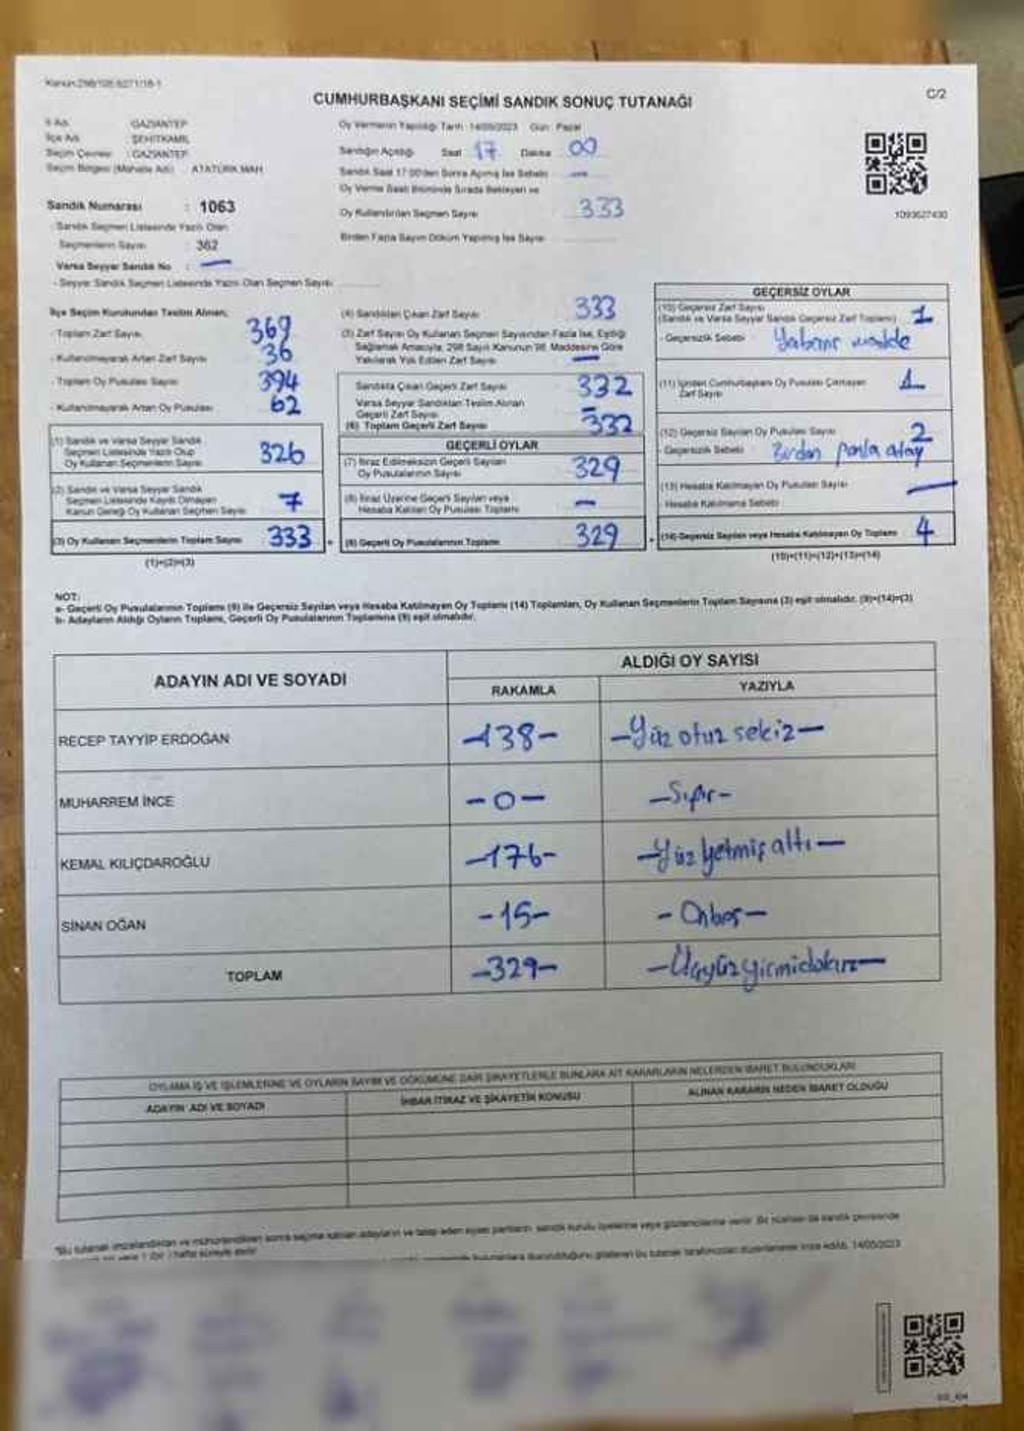 Kanun:298/105 6271/16-1
CUMHURBAŞKANI SEÇİMİ SANDIK SONUÇ TUTANAĞI
C/2
İl Adı : GAZİANTEP
İlçe Adı : ŞEHİTKAMİL
Seçim Çevresi : GAZİANTEP
Seçim Bölgesi (Mahalle Adı) : ATATÜRK MAH
Oy Vermenin Yapıldığı Tarih: 14/05/2023 Gün: Pazar
Sandığın Açıldığı Saat 17 Dakika 00
Sandık Saat 17:00'den Sonra Açılmış İse Sebebi —
Oy Verme Saati Bitiminde Sırada Bekleyen ve
Oy Kullandırılan Seçmen Sayısı 333
Birden Fazla Sayım Döküm Yapılmış İse Sayısı
1093627430
Sandık Numarası : 1063
- Sandık Seçmen Listesinde Yazılı Olan
Seçmenlerin Sayısı : 362
Varsa Seyyar Sandık No : —
- Seyyar Sandık Seçmen Listesinde Yazılı Olan Seçmen Sayısı
İlçe Seçim Kurulundan Teslim Alınan;
- Toplam Zarf Sayısı 369
- Kullanılmayarak Artan Zarf Sayısı 36
- Toplam Oy Pusulası Sayısı 394
- Kullanılmayarak Artan Oy Pusulası 62
(1) Sandık ve Varsa Seyyar Sandık
Seçmen Listesinde Yazılı Olup
Oy Kullanan Seçmenlerin Sayısı 326
(2) Sandık ve Varsa Seyyar Sandık
Seçmen Listesinde Kaydı Olmayan
Kanun Gereği Oy Kullanan Seçmen Sayısı 7
(3) Oy Kullanan Seçmenlerin Toplam Sayısı 333
(1)+(2)=(3)
(4) Sandıktan Çıkan Zarf Sayısı 333
(5) Zarf Sayısı Oy Kullanan Seçmen Sayısından Fazla İse, Eşitliği
Sağlamak Amacıyla, 298 Sayılı Kanunun 98. Maddesine Göre
Yakılarak Yok Edilen Zarf Sayısı —
Sandıkta Çıkan Geçerli Zarf Sayısı 332
Varsa Seyyar Sandıktan Teslim Alınan
Geçerli Zarf Sayısı —
(6) Toplam Geçerli Zarf Sayısı 332
GEÇERLİ OYLAR
(7) İtiraz Edilmeksizin Geçerli Sayılan
Oy Pusulalarının Sayısı 329
(8) İtiraz Üzerine Geçerli Sayılan veya
Hesaba Katılan Oy Pusulası Toplamı —
(9) Geçerli Oy Pusulalarının Toplamı 329
GEÇERSİZ OYLAR
(10) Geçersiz Zarf Sayısı 1
(Sandık ve Varsa Seyyar Sandık Geçersiz Zarf Toplamı)
- Geçersizlik Sebebi Yabancı madde
(11) İçinden Cumhurbaşkanı Oy Pusulası Çıkmayan
Zarf Sayısı 1
(12) Geçersiz Sayılan Oy Pusulası Sayısı 2
- Geçersizlik Sebebi Birden fazla aday
(13) Hesaba Katılmayan Oy Pusulası Sayısı —
Hesaba Katılmama Sebebi
(14) Geçersiz Sayılan veya Hesaba Katılmayan Oy Toplamı 4
(10)+(11)+(12)+(13)=(14)
NOT:
a- Geçerli Oy Pusulalarının Toplamı (9) ile Geçersiz Sayılan veya Hesaba Katılmayan Oy Toplamı (14) Toplamları, Oy Kullanan Seçmenlerin Toplam Sayısına (3) eşit olmalıdır. (9)+(14)=(3)
b- Adayların Aldığı Oyların Toplamı, Geçerli Oy Pusulalarının Toplamına (9) eşit olmalıdır.
ADAYIN ADI VE SOYADI
ALDIĞI OY SAYISI
RAKAMLA YAZIYLA
RECEP TAYYİP ERDOĞAN -138- -Yüz otuz sekiz-
MUHARREM İNCE -0- -Sıfır-
KEMAL KILIÇDAROĞLU -176- -Yüz yetmiş altı-
SİNAN OĞAN -15- -Onbeş-
TOPLAM -329- -Üçyüzyirmidokuz-
OYLAMA İŞ VE İŞLEMLERİNE VE OYLARIN SAYIM VE DÖKÜMÜNE DAİR ŞİKAYETLERLE BUNLARA AİT KARARLARIN NELERDEN İBARET BULUNDUKLARI
ADAYIN ADI VE SOYADI İHBAR İTİRAZ VE ŞİKAYETİN KONUSU ALINAN KARARIN NEDEN İBARET OLDUĞU
"Bu tutanak imzalandıktan ve mühürlendikten sonra seçime katılan adayların ve talep eden siyasi partilerin sandık kurulu üyelerine veya gözlemcilerine verilir. Bir nüshası da sandık çevresinde
1 (bir) hafta süreyle asılır.
bulunanlara duyurulduğunu gösteren bu tutanak tarafımızdan düzenlenerek imza edildi. 14/05/2023